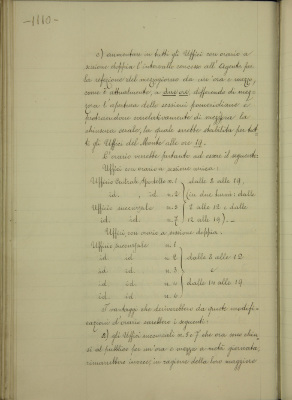 -1110-
c) aumentare in tutti gli Uffici con orario a
sezione doppia l'intervallo concesso all'Agente per
la refezione del mezzogiorno da un'ora e mezza,
come è attualmente, a due ore differendo di mez-
z'ora l'apertura delle sezioni pomeridiane e
protraendone di mezz'ora la
chiusura serale, la quale sarebbe stabilita per tut-
ti gli Uffici del Monte alle ore 19.
L'orario sarebbe pertanto ad essere il seguente:
Uffici con orario a sezione unica.
Ufficio Centrale n. 1 dalle 8 alle 19,
id. id. n. 2 (in due turni: dalle
Ufficio succursale n. 2 8 alle 12 e dalle
id. id. n. 7 12 alle 19).
Uffici con orario a sezione doppia.
Ufficio succursale n. 1
id. id. n. 2 dalle 8 alle 12
id. id. n. 3 e
id. id. n. dalle 14 alle 19
id. id. n.
I vantaggi che deriverebbero da queste modifi-
cazioni d'orario sarebbero i seguenti:
a) gli Uffici succursali n. 5 e 7 che ora sono chiu-
si al pubblico per un'ora e mezzo a metà giornata,
rimarrebbero invece, in ragione della loro maggiore